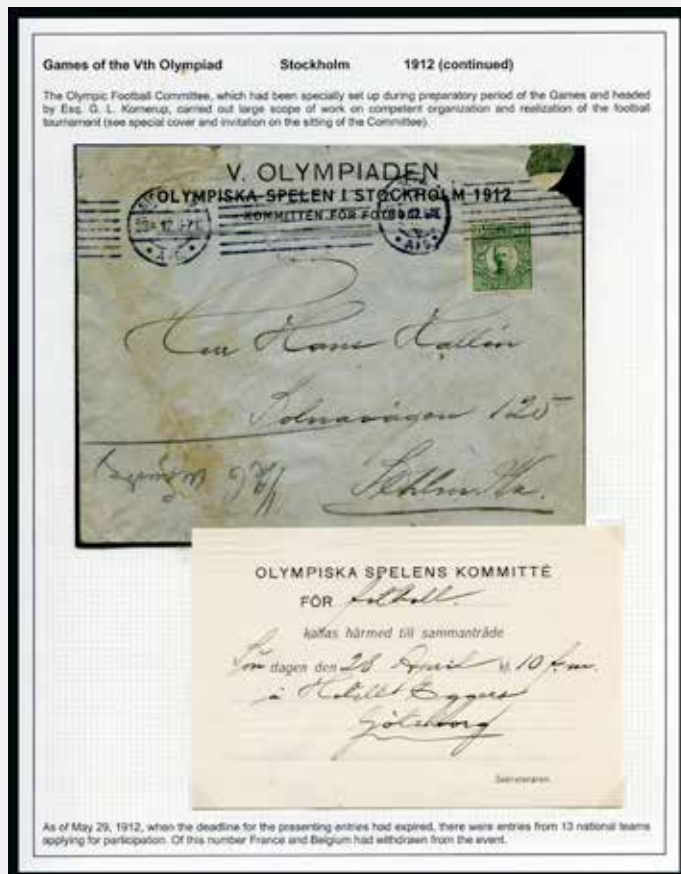 Games of the Vth Olympiad Stockholm 1912 (continued)
The Olympic Football Committee, which had been specially set up during preparatory period of the Games and headed
by Esq. G. L. Kornerup, carried out large scope of work on competent organization and realization of the football
tournament (see special cover and invitation on the sitting of the Committee).
V. OLYMPIADEN
OLYMPISKA SPELEN I STOCKHOLM 1912
KOMMITTÉN FÖR
Herr Hans Hallén
125
Sthlm Va.
OLYMPISKA SPELENS KOMMITTÉ
FÖR fotboll.
kallas härmed till sammanträde
Sön dagen den 28 April kl. 10 f.m.
å Hotell Eggers
Göteborg
Sekreteraren.
As of May 29, 1912, when the deadline for the presenting entries had expired, there were entries from 13 national teams
applying for participation. Of this number France and Belgium had withdrawn from the event.